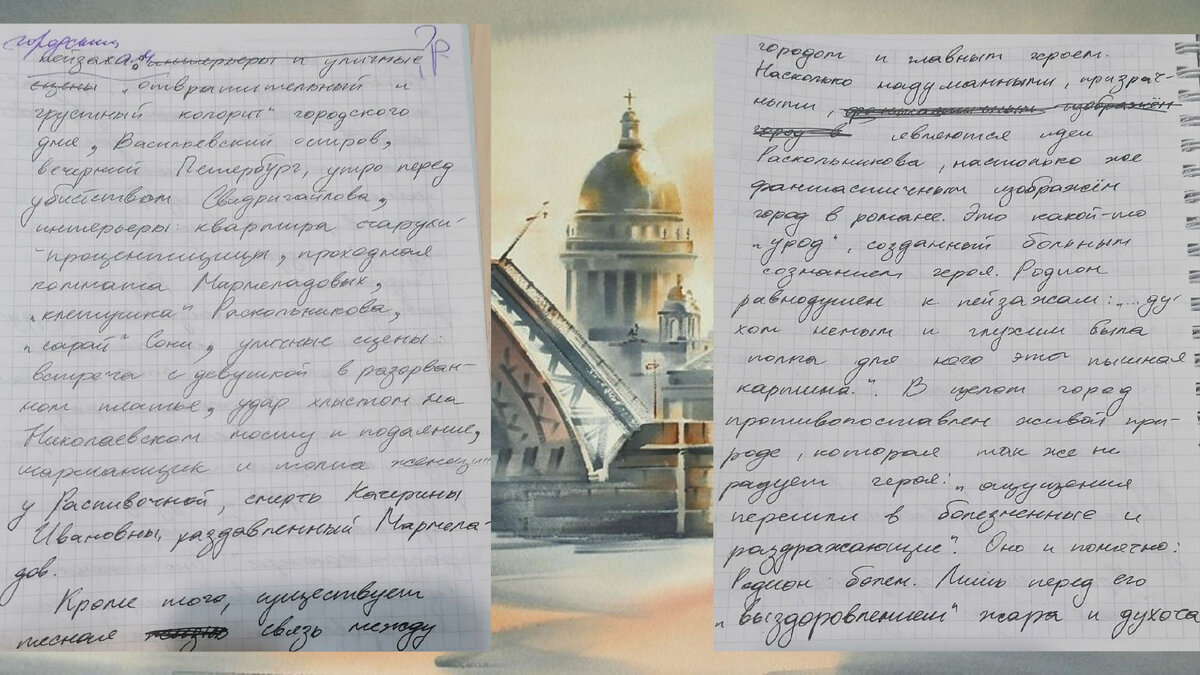 городским
?р
пейзажам: интерьеры и уличные
сцены „отвратительный и
грустный колорит" городского
дня, Васильевский остров,
вечерний Петербург, утро перед
убийством Свидригайлова,
интерьеры: квартира старухи-
-процентщицы, проходная
комната Мармеладовых,
„клетушка" Раскольникова,
„сарай" Сони, уличные сцены:
встреча с девушкой в разорван-
ном платье, удар хлыстом на
Николаевском мосту и подаяние,
шарманщик и толпа женщин
у Распивочной, смерть Катерины
Ивановны, раздавленный Мармела-
дов.
Кроме того, существует
тесная связь между
городом и главным героем.
Насколько надуманными, призрач-
ными, изображён
город в являются идеи
Раскольникова, настолько же
фантастичным изображён
город в романе. Это какой-то
„урод", созданный больным
сознанием героя. Родион
равнодушен к пейзажам: „...ду-
хом немым и глухим была
полна для него эта пышная
картина.". В целом город
противопоставлен живой при-
роде, которая так же не
радует героя: „ощущения
перешли в болезненные и
раздражающие". Оно и понятно:
Родион болен. Лишь перед его
„выздоровлением" жара и духота